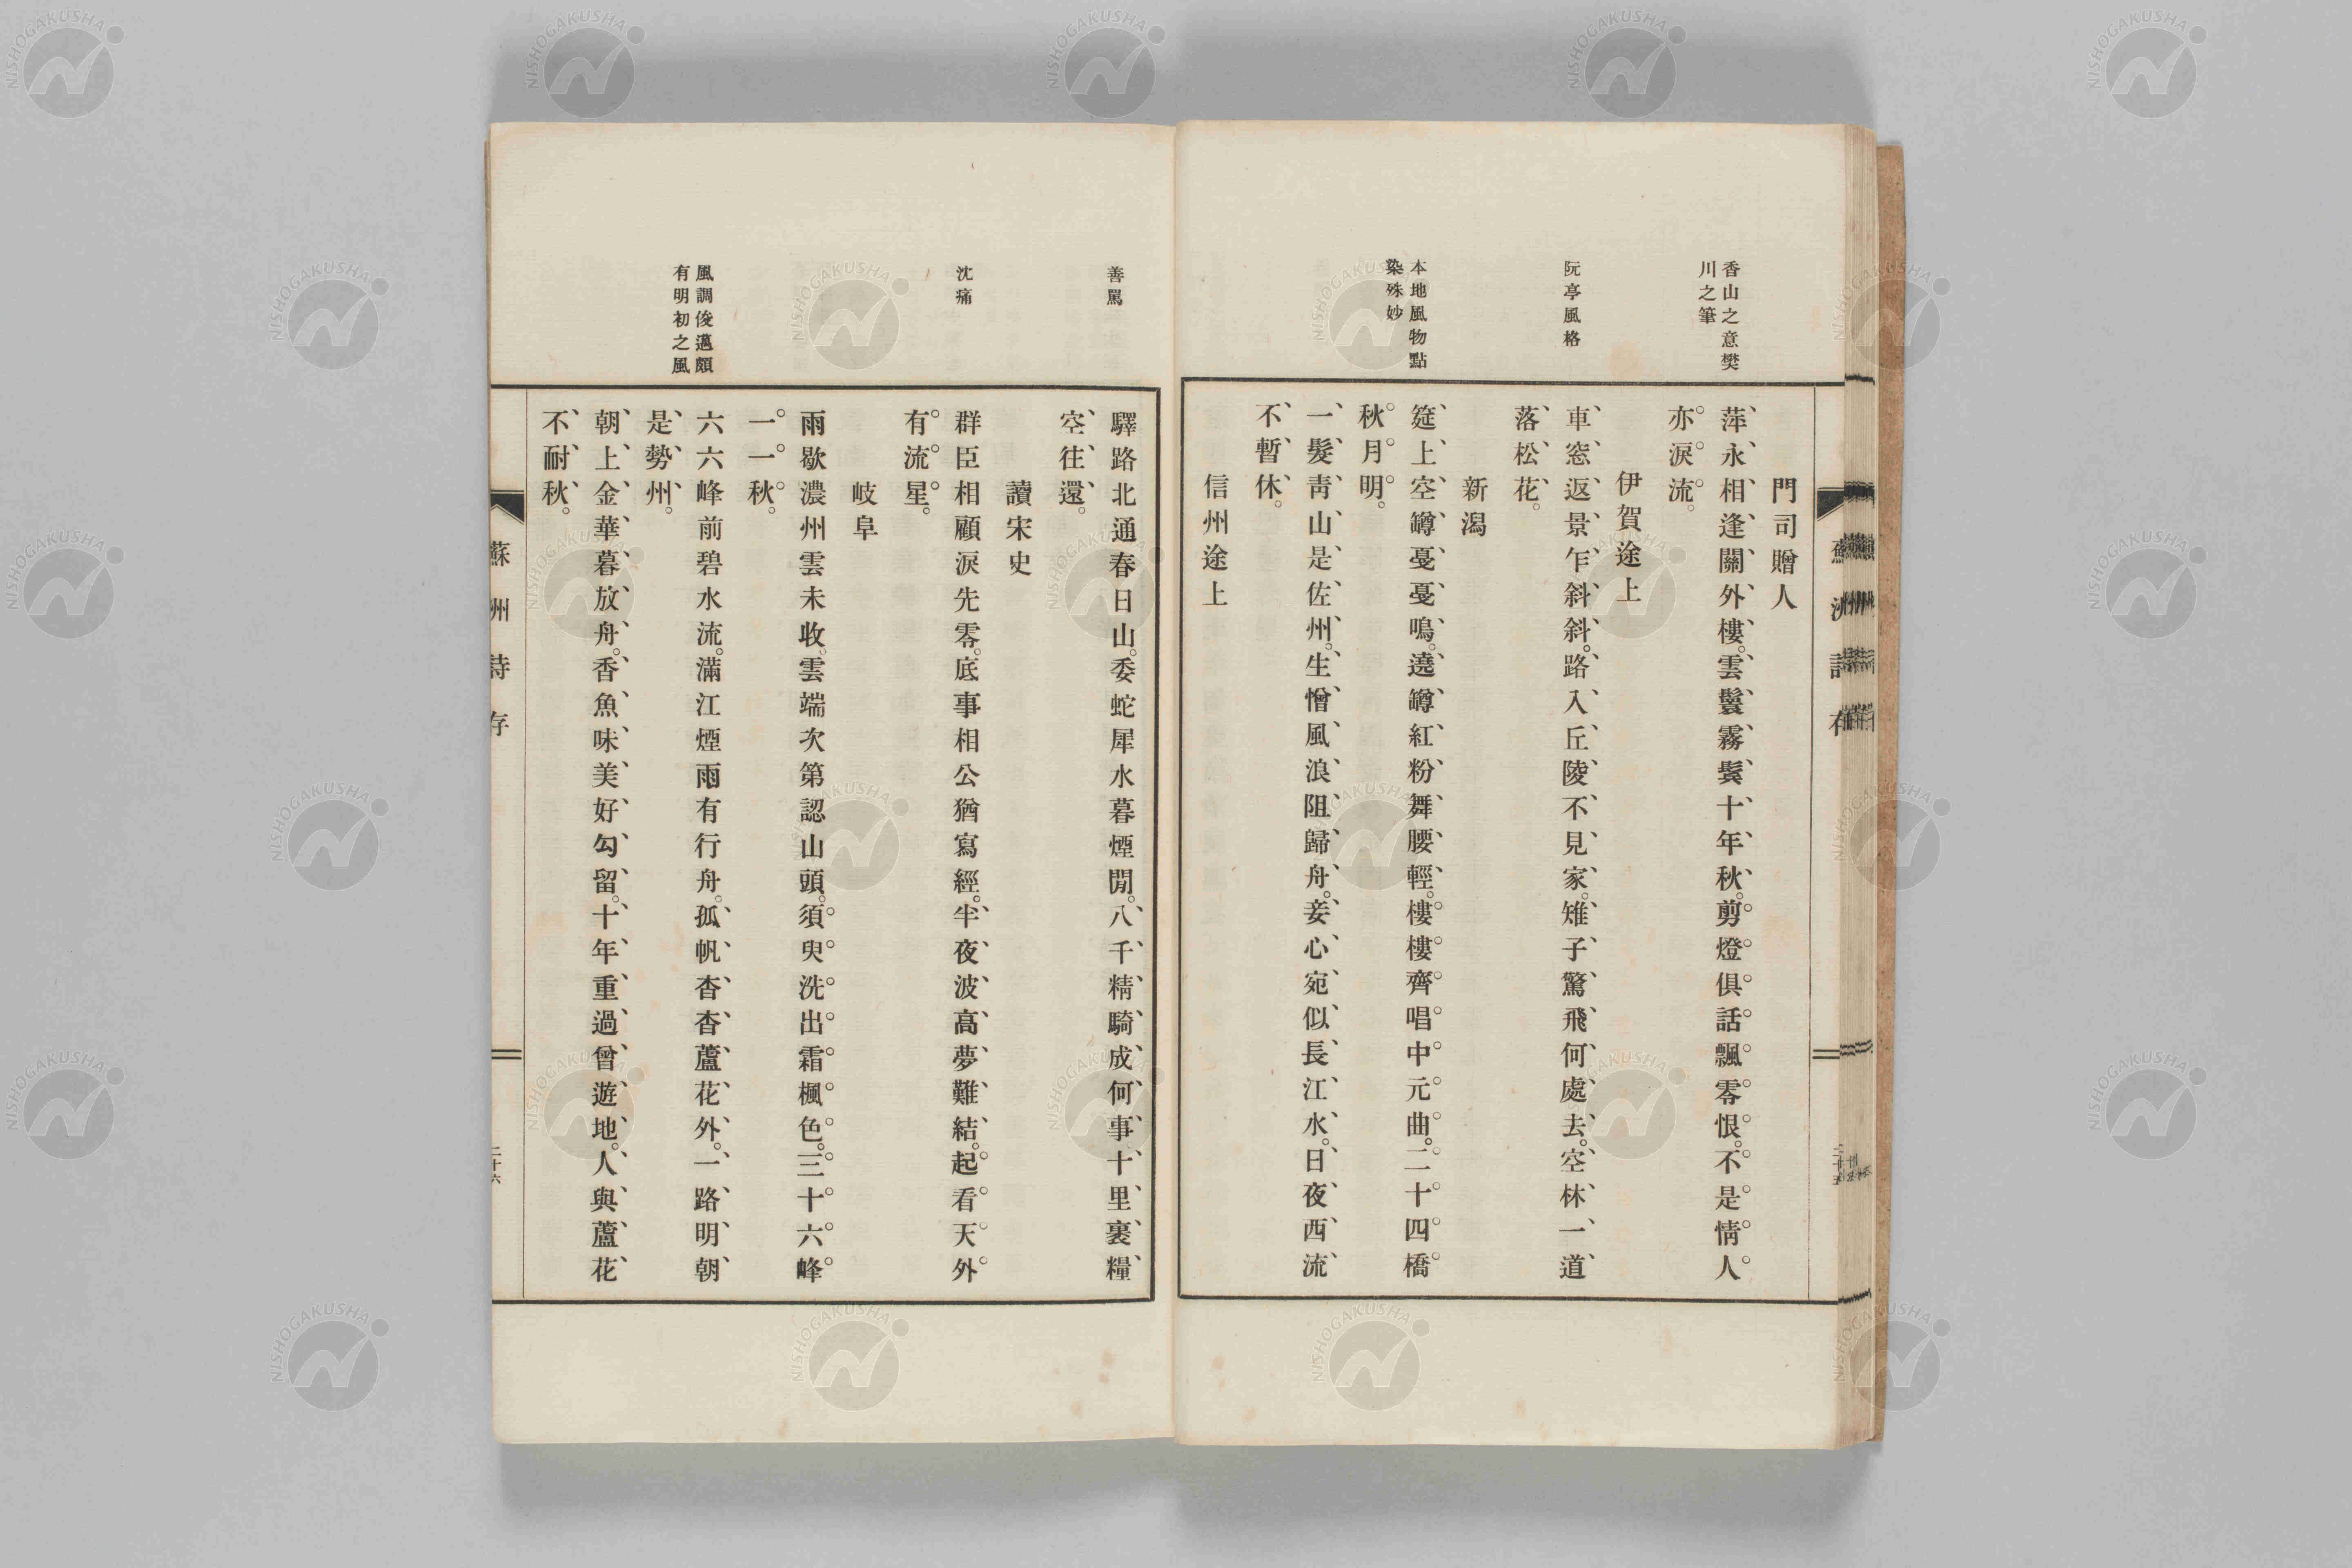 香山之意樊
川之筆
阮亭風格
本地風物點
染殊妙
門司贈人
萍永相逢關外樓。雲鬟霧鬢十年秋。剪燈俱話飄零恨。不是情人
亦淚流。
伊賀途上
車窓返景乍斜斜。路入丘陵不見家。雉子驚飛何處去。空林一道
落松花。
新潟
筵上空罇戞戞鳴。遶罇紅粉舞腰輕。樓樓齊唱中元曲。二十四橋
秋月明。
一髮靑山是佐州。生憎風浪阻歸舟。妾心宛似長江水。日夜西流
不暫休。
信州途上
善罵
沈痛
風調俊邁頗
有明初之風
驛路北通春日山。委蛇犀水暮煙閒。八千精騎成何事。十里裹糧
空往還。
讀宋史
群臣相顧淚先零。底事相公猶寫經。半夜波高夢難結。起看天外
有流星。
岐阜
雨歇濃州雲未收。雲端次第認山頭。須臾洗出霜楓色。三十六峰
一一秋。
六六峰前碧水流。滿江煙雨有行舟。孤帆杳杳蘆花外。一路明朝
是勢州。
朝上金華暮放舟。香魚味美好勾留。十年重過曾遊地。人與蘆花
不耐秋。
蘇州詩存
二十六